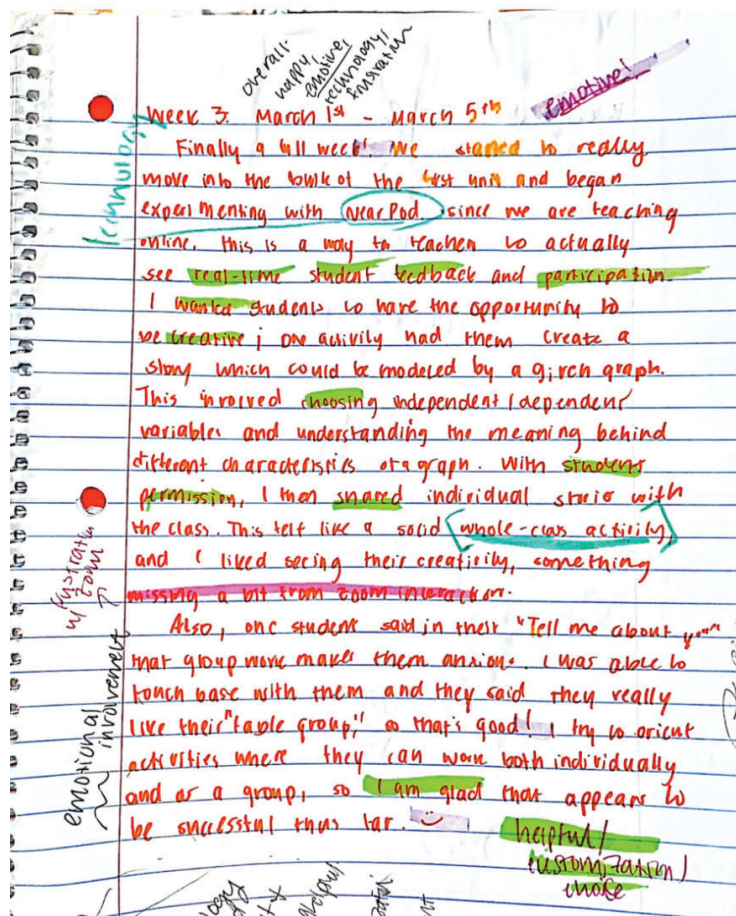 overall
happy,
emotive,
technology,
frustration
emotive!
Week 3: March 1st - March 5th
technology
Finally a full week! We started to really
move into the bulk of the first unit and began
experimenting with NearPod. Since we are teaching
online, this is a way to teachers to actually
see real-time student feedback and participation.
I wanted students to have the opportunity to
be creative; one activity had them create a
story which could be modeled by a given graph.
This involved choosing independent/dependent
variables and understanding the meaning behind
different characteristics of a graph. With students
permission, I then shared individual stories with
the class. This felt like a solid [whole-class activity],
and I liked seeing their creativity, something
missing a bit from zoom interaction.
w/ frustration
zoom
Also, one student said in their "Tell me about you"
that group work makes them anxious. I was able to
touch base with them and they said they really
like their "table group," so that's good! I try to orient
activities where they can work both individually
and as a group, so I am glad that appears to
be successful thus far.
emotional
involvement
helpful/
customization/
choice